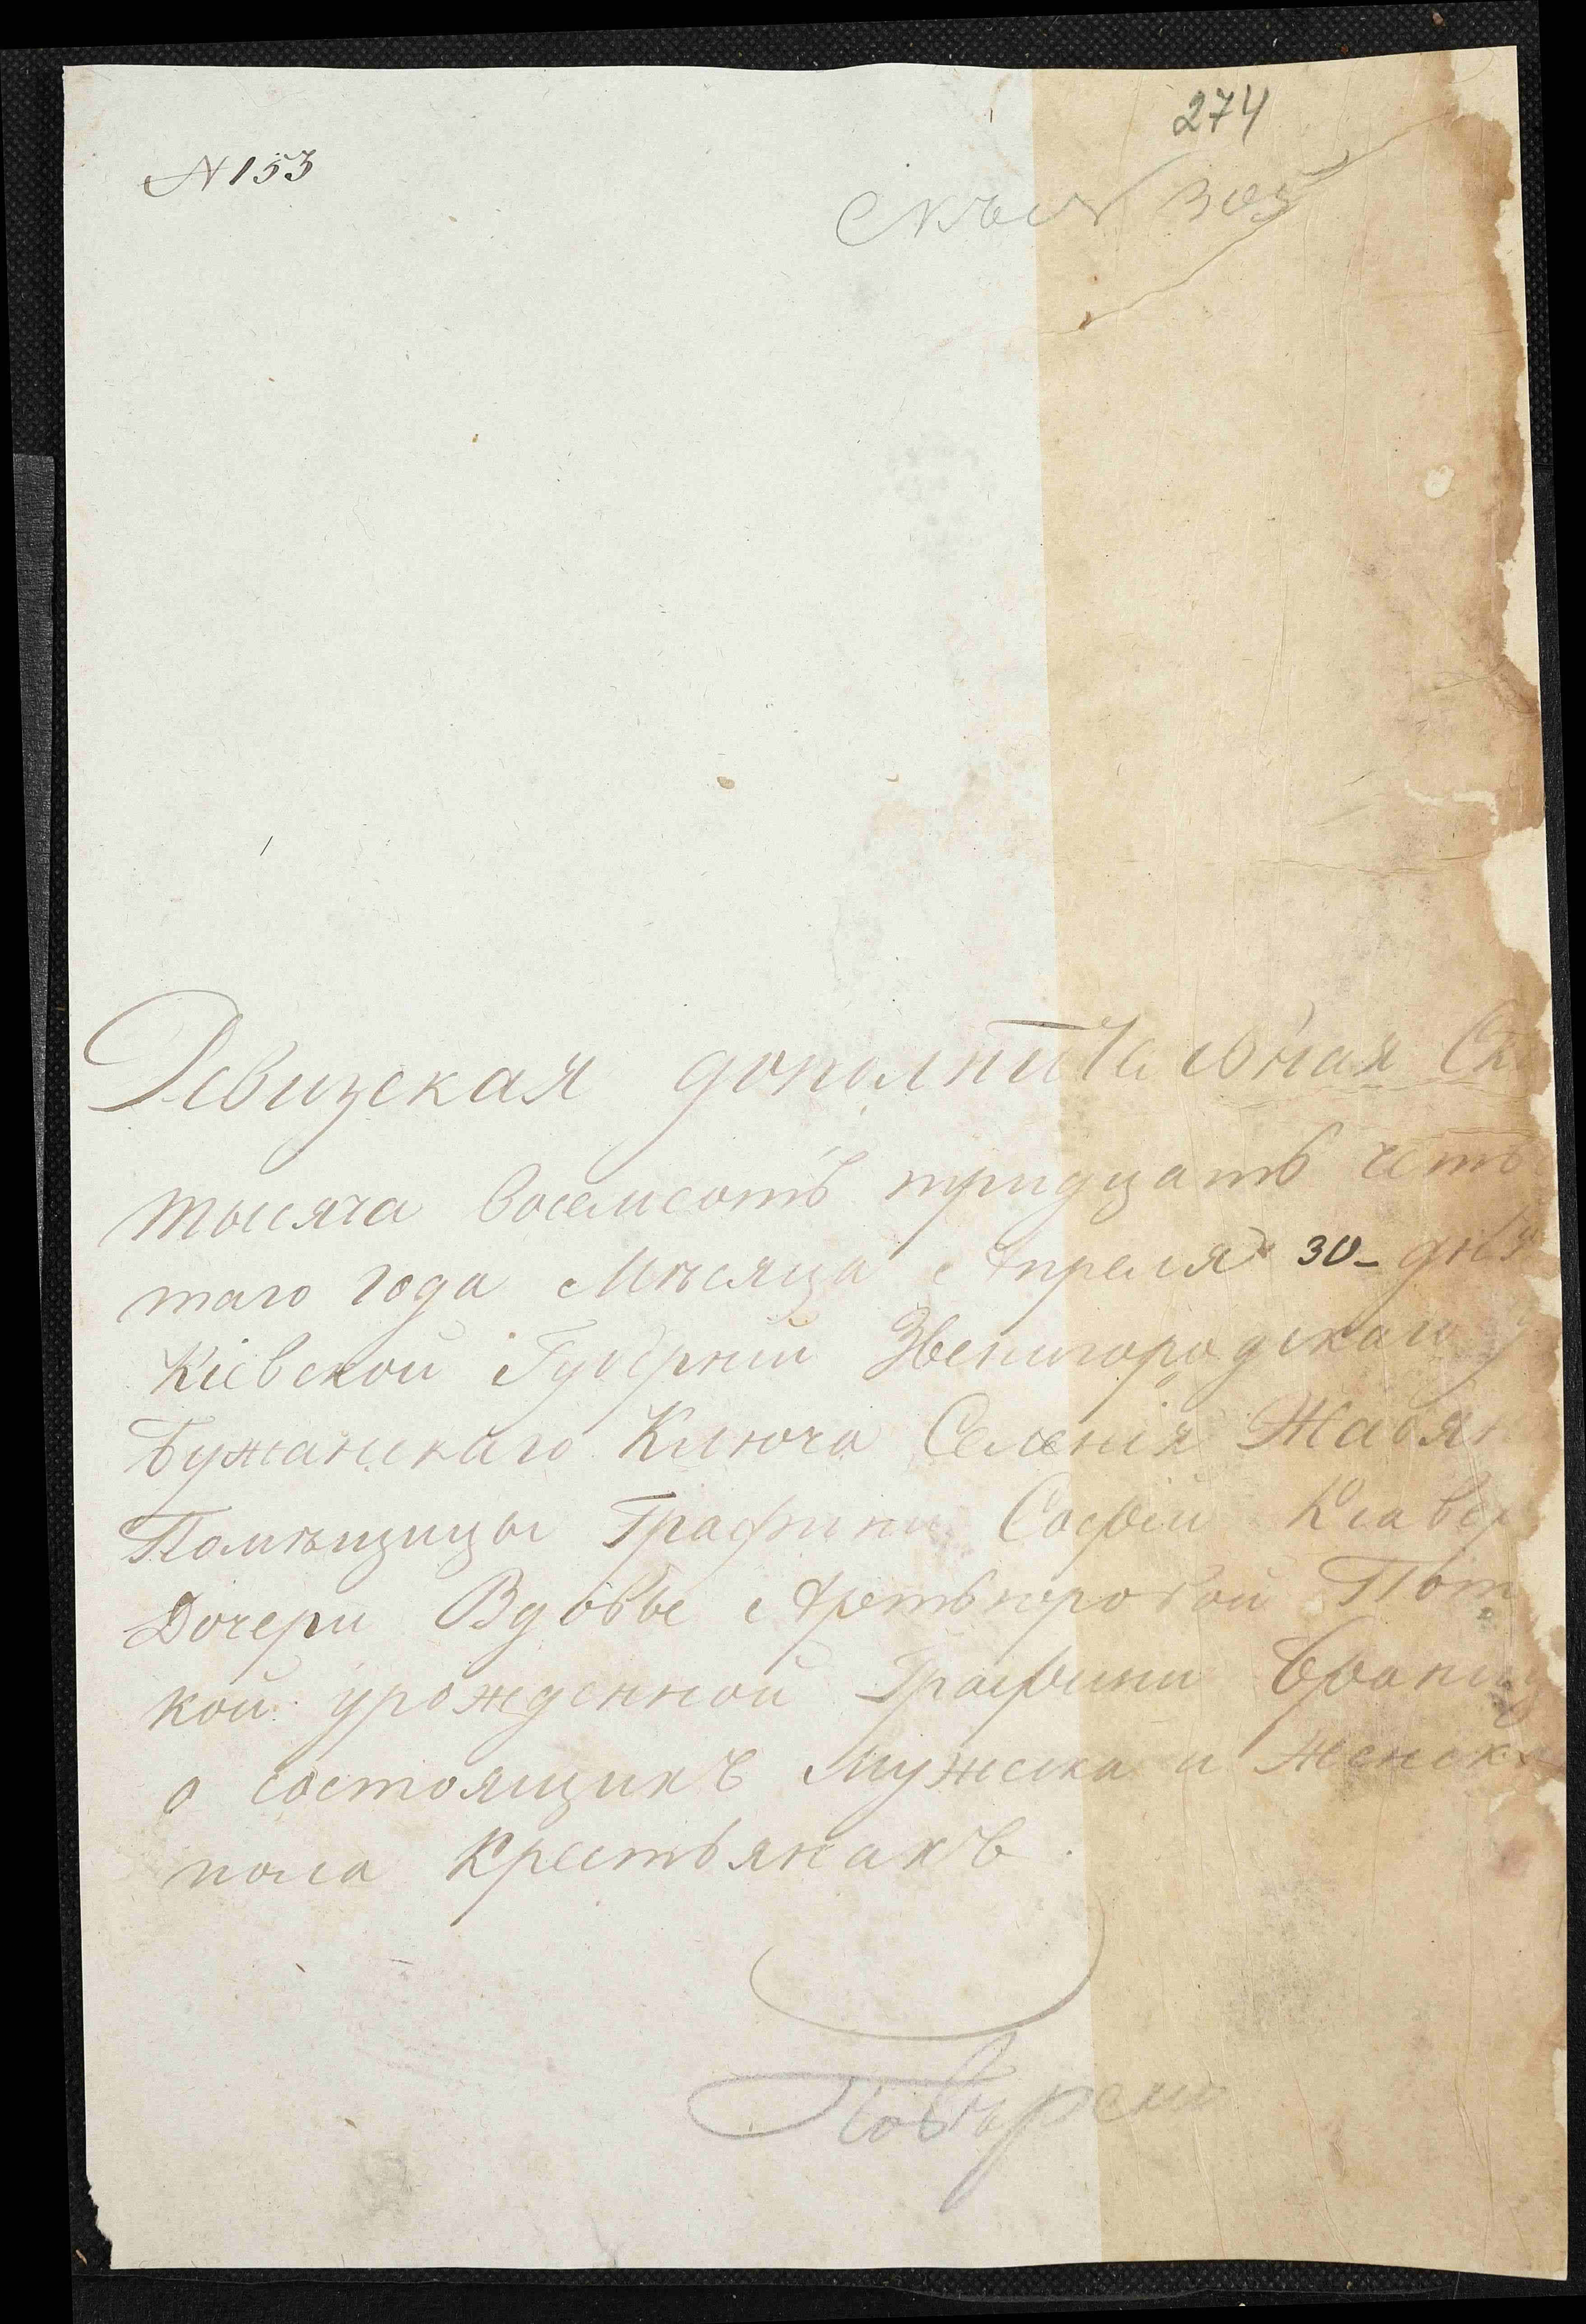 274
N 153
Ревизская дополнительная Ска
тысяча восемсотъ тридцать четве
таго года Мѣсяца Апреля 30 - дня
Кіевской Губерніи Звенигородскаго у
Бужанскаго Ключа Селенія Жабян
Помѣщицы Графини Софіи Ксавер
Дочери Вдовы Артьюровой Пот
кой урожденной Графини Браниц
о состоящихъ мужеска и женска
пола Крестьянахъ